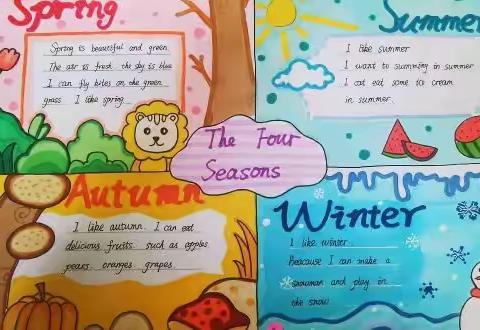 Spring
Spring is beautiful and green.
The air is fresh the sky is blue
I can fly kites on the green
grass I like spring
Summer
I like summer
I want to swimming in summer
I cat eat some ice cream
in summer.
The Four
Seasons
Autumn
I like autumn. I can eat
delicious fruits such as apples
pears oranges grapes
Winter
I like winter.
Beacause I can make a
snowman and play in
the snow